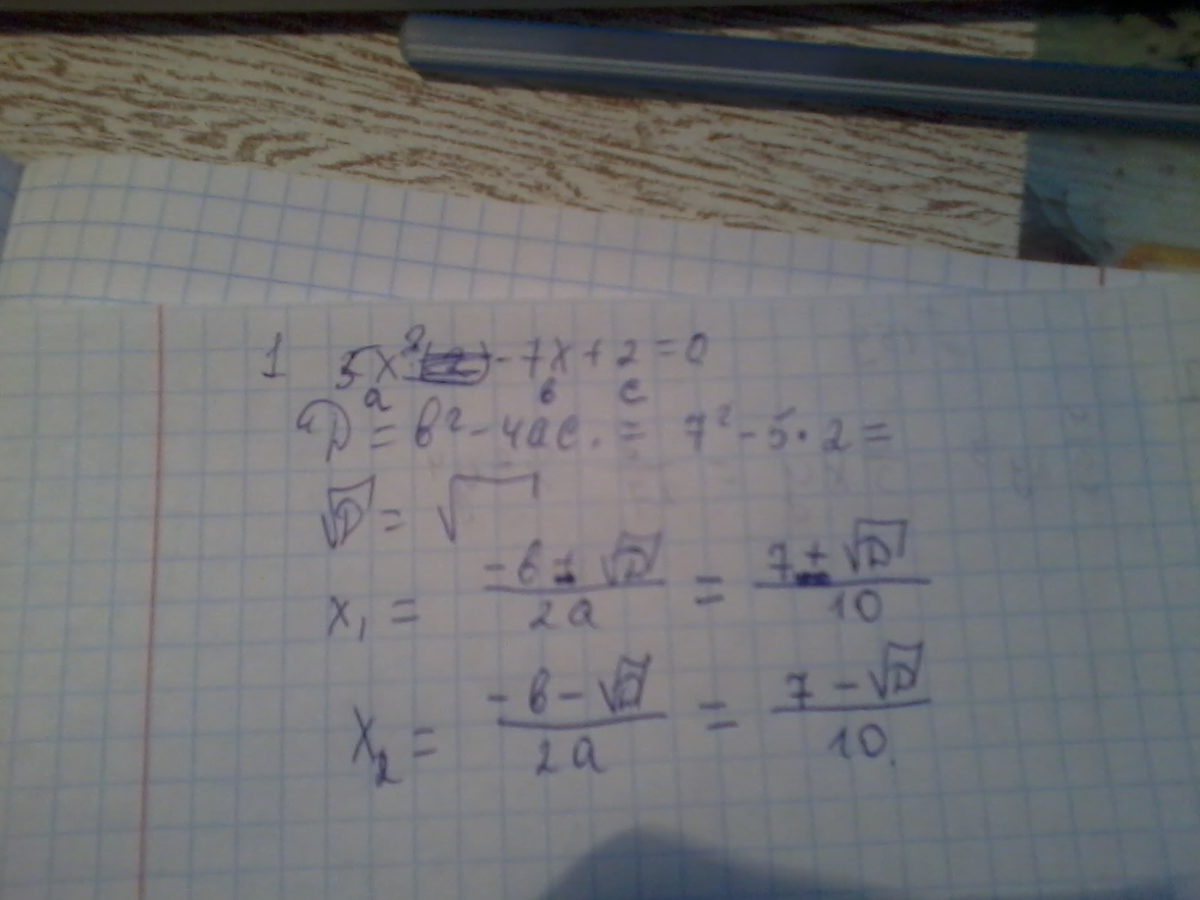 1 5x² - 7x + 2 = 0
a в c
D = в² - 4ac. = 7² - 5 · 2 =
√D = √
x₁ = (-в + √D)/(2a) = (7 + √D)/10
x₂ = (-в - √D)/(2a) = (7 - √D)/10.